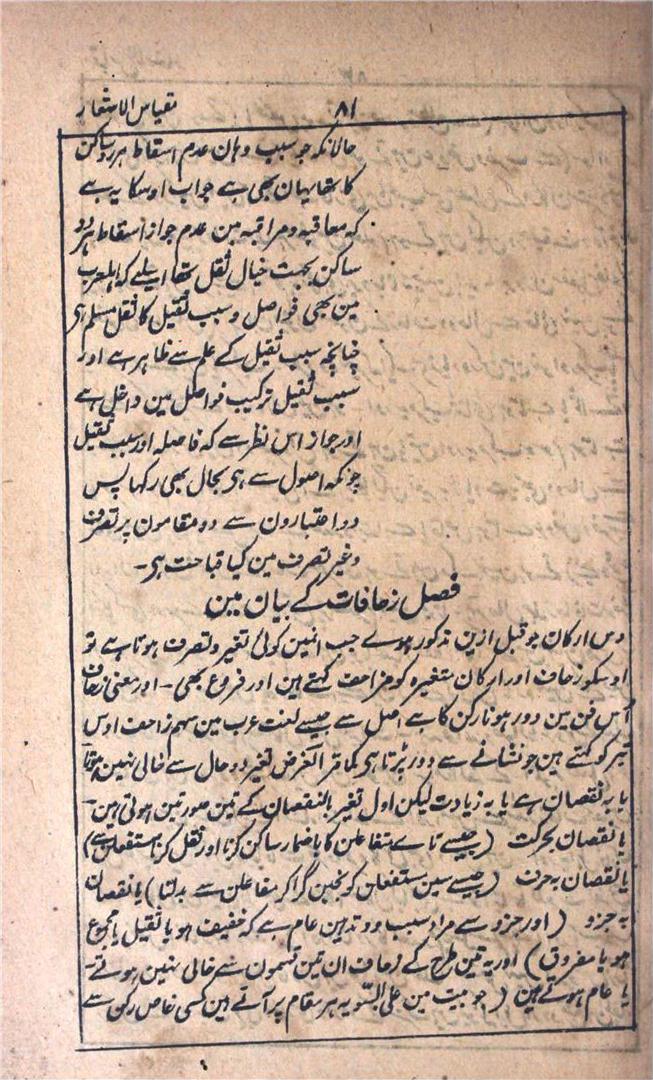 ۸۱ مقیاس الاشعار
حالانکہ جو سبب وہان عدم اسقاط ہر دو ساکن
کا تھا یہان بھی ہے جواب اوسکا یہ ہے
کہ معاقبہ و مراقبہ مین عدم جواز اسقاط ہر دو
ساکن بجہت خیال ثقل تھا اسلیے کہ
مین بھی فواصل و سبب ثقیل کا ثقل مسلم ہی
چنانچہ سبب ثقیل کے علم سے ظاہر ہے اور
سبب ثقیل ترکیب فواصل مین داخل ہے
اور جواز اس نظر سے کہ فاصلہ اور سبب ثقیل
چونکہ اصول سے ہی بحال بھی رکھا پس
دو اعتبارون سے دو مقامون پر تصرف
و غیر تصرف مین کیا قباحت ہی۔
فصل زحافات کے بیان مین
دس ارکان جو قبل ازین مذکور ہوے جب انمین کوئی تغیر و تصرف ہوتا ہے تو
اوسکو زحاف اور ارکان متغیرہ کو مزاحف کہتے ہین اور فروع بھی۔ اور معنی زحاف
اس فن مین دور ہونا رکن کا ہے اصل سے جیسے لغت عرب مین سہم زاحف اوس
تیر کو کہتے ہین جو نشانے سے دور پڑتا ہی کما مر الغرض تغیر دو حال سے خالی نہین ہوتا
یا بہ نقصان ہے یا بہ زیادت لیکن اول تغیر بالنقصان کے تین صورتین ہوتی ہین۔
یا نقصان بحرکت (جیسے تاے متفاعلن کا باضمار ساکن کرنا اور نقل کرنا مستفعلن سے)
یا نقصان بہ حرف (جیسے سین مستفعلن کو بخبن گرا کر مفاعلن سے بدلنا) یا نقصان
بہ جزو (اور جزو سے مراد سبب و وتد ہین عام ہے کہ خفیف ہو یا ثقیل یا مجموع
ہو یا مفروق) اور یہ تین طرح کے زحاف ان تین قسمون سے خالی نہین ہوتے۔
یا عام ہوتے ہین (جو بیت مین علی السویہ ہر مقام پر آتے ہین کسی خاص رکن سے